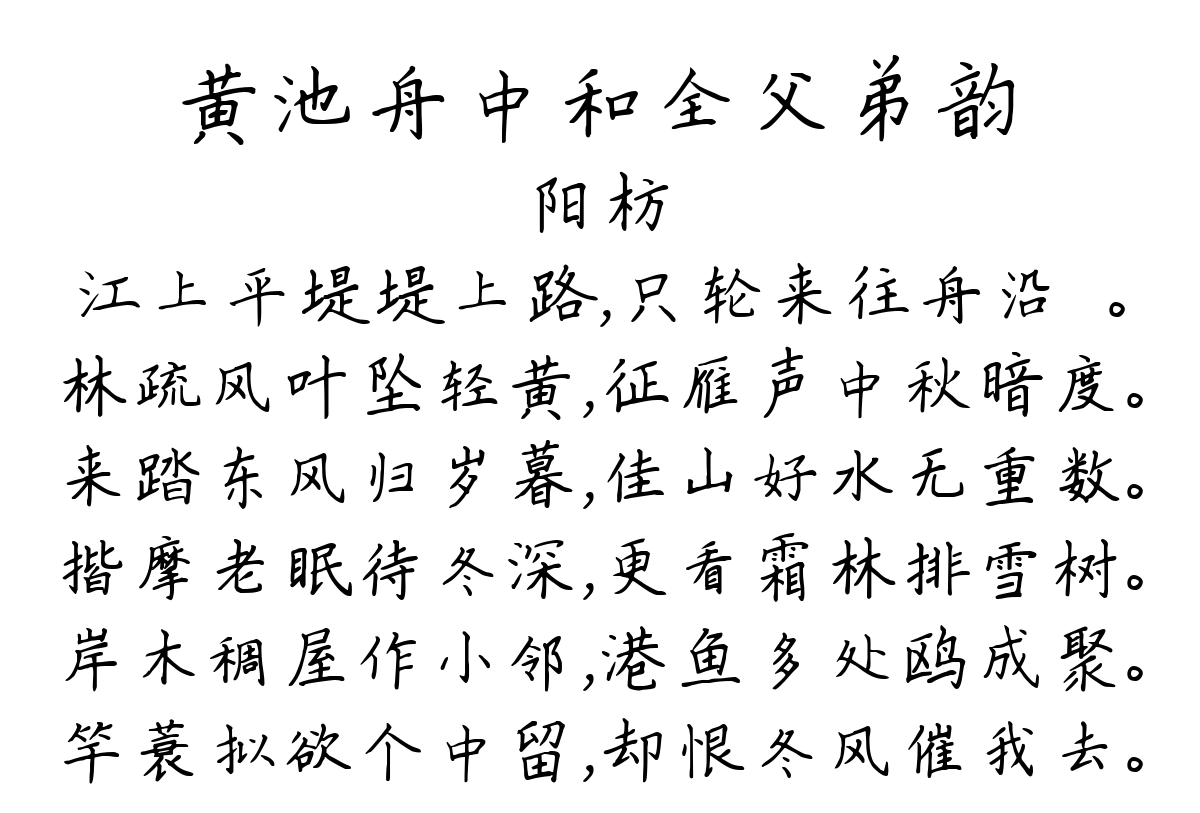 黄池舟中和全父弟韵
阳枋
江上平堤堤上路,只轮来往舟沿 。
林疏风叶坠轻黄,征雁声中秋暗度。
来踏东风归岁暮,佳山好水无重数。
揩摩老眠待冬深,更看霜林排雪树。
岸木稠屋作小邻,港鱼多处鸥成聚。
竿蓑拟欲个中留,却恨冬风催我去。